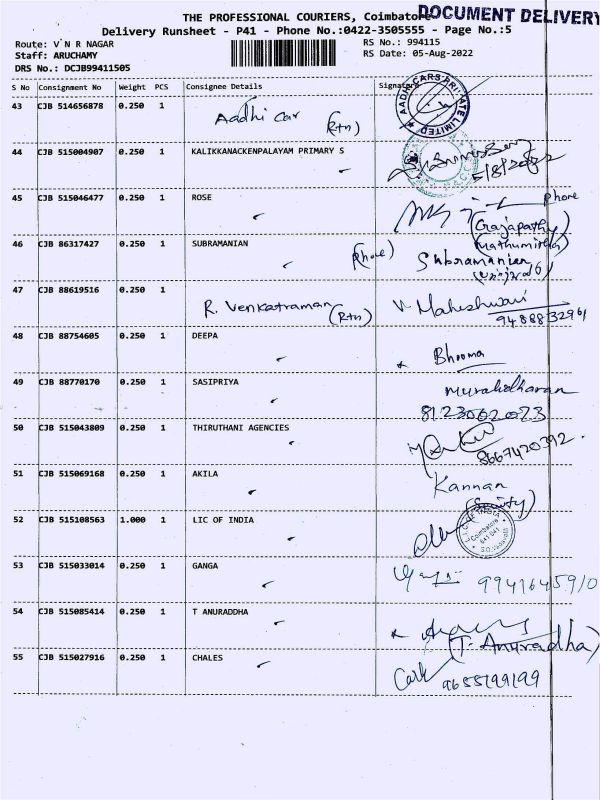 THE PROFESSIONAL COURIERS, Coimbatore
DOCUMENT DELIVERY
Delivery Runsheet - P41 - Phone No.:0422-3505555 - Page No.:5
Route: V N R NAGAR
RS No.: 994115
Staff: ARUCHAMY
RS Date: 05-Aug-2022
DRS No.: DCJB99411505
S No Consignment No Weight PCS Consignee Details Signature
43 CJB 514656878 0.250 1 Aadhi Car (Rtn)
AADHI CARS PRIVATE LIMITED
44 CJB 515004907 0.250 1 KALIKKANACKENPALAYAM PRIMARY S
5/8/2022
45 CJB 515046477 0.250 1 ROSE
Phone
46 CJB 86317427 0.250 1 SUBRAMANIAN (Phone) Subramanian
47 CJB 88619516 0.250 1 R. Venkatraman (Rtn) V. Maheshwari
9488832961
48 CJB 88754605 0.250 1 DEEPA Bhooma
49 CJB 88770170 0.250 1 SASIPRIYA Muralidharan
8123002023
50 CJB 515043809 0.250 1 THIRUTHANI AGENCIES
8667420392
51 CJB 515069168 0.250 1 AKILA Kannan
52 CJB 515108563 1.000 1 LIC OF INDIA
L.I.C. OF INDIA
Coimbatore
641 041
53 CJB 515033014 0.250 1 GANGA 9941645910
54 CJB 515085414 0.250 1 T ANURADDHA
(T. Anuradha)
55 CJB 515027916 0.250 1 CHALES
9655199199